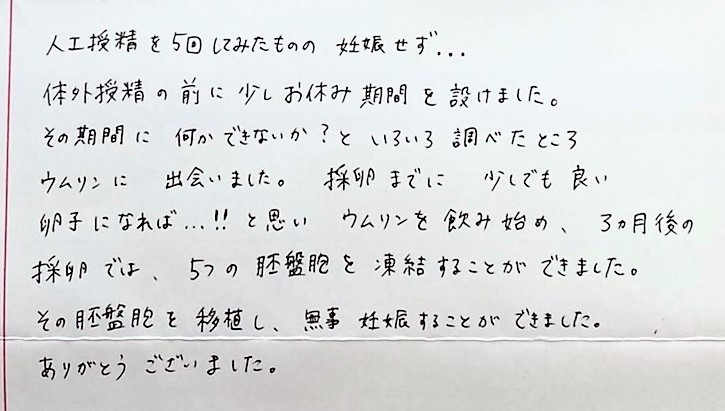 人工授精を5回してみたものの 妊娠せず...
体外授精の前に少しお休み期間を設けました。
その期間に 何かできないか?と いろいろ 調べたところ
ウムリンに 出会いました。 採卵までに 少しでも良い
卵子になれば...!!と思い ウムリンを飲み始め、3ヵ月後の
採卵では、5つの胚盤胞を凍結することができました。
その胚盤胞を移植し、無事 妊娠することができました。
ありがとうございました。